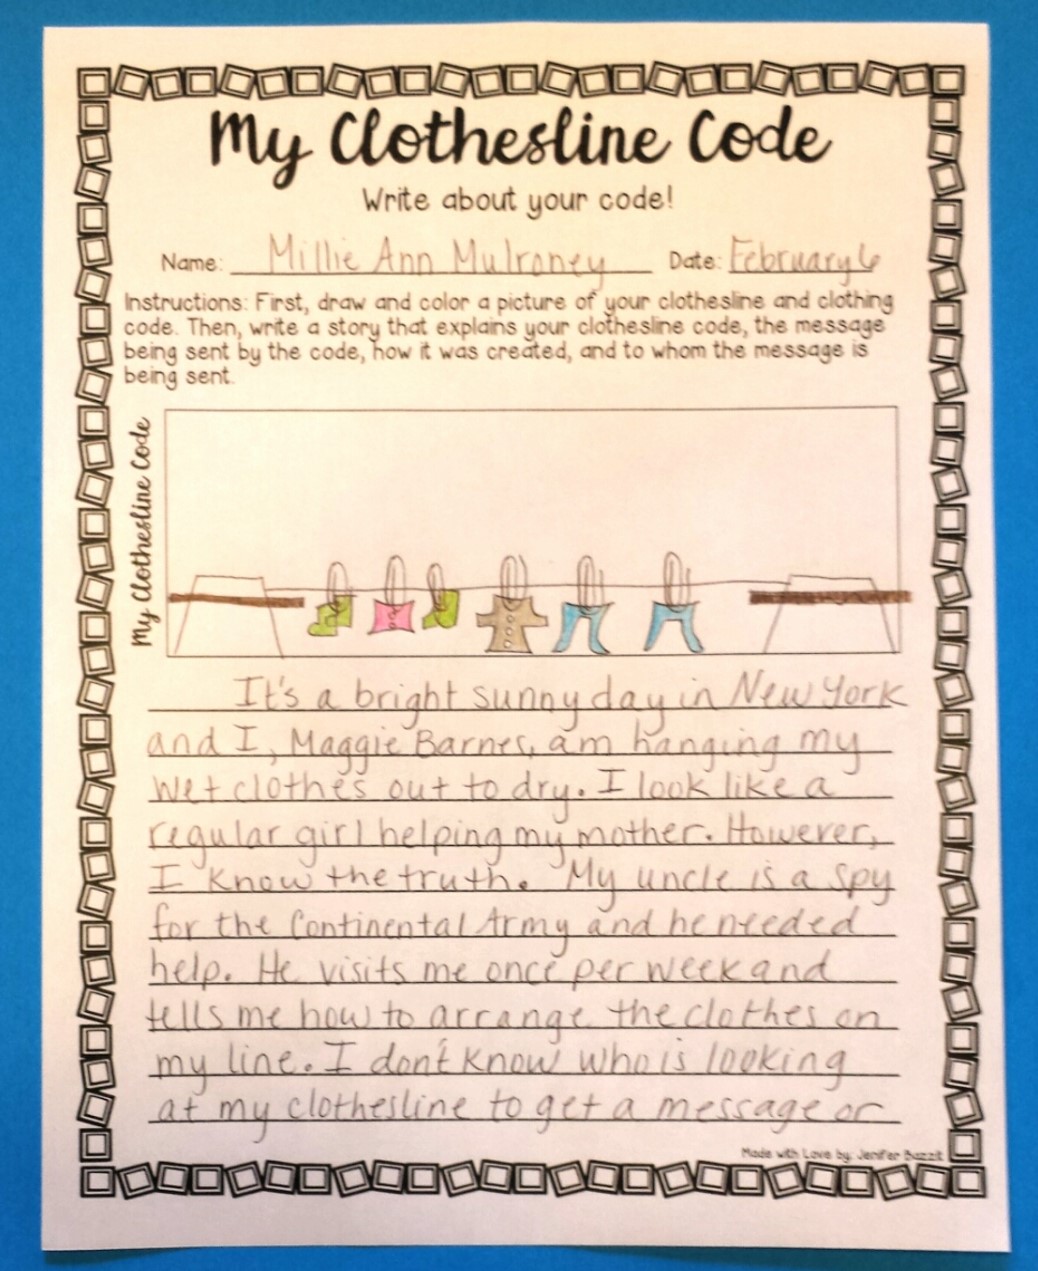 My Clothesline Code
Write about your code!
Name: Millie Ann Mulroney Date: February 6
Instructions: First, draw and color a picture of your clothesline and clothing
code. Then, write a story that explains your clothesline code, the message
being sent by the code, how it was created, and to whom the message is
being sent.
My Clothesline Code
It's a bright sunny day in New York
and I, Maggie Barnes, am hanging my
wet clothes out to dry. I look like a
regular girl helping my mother. However,
I know the truth. My uncle is a spy
for the Continental Army and he needed
help. He visits me once per week and
tells me how to arrange the clothes on
my line. I don't know who is looking
at my clothesline to get a message or
Made with Love by: Jenifer Bazzit